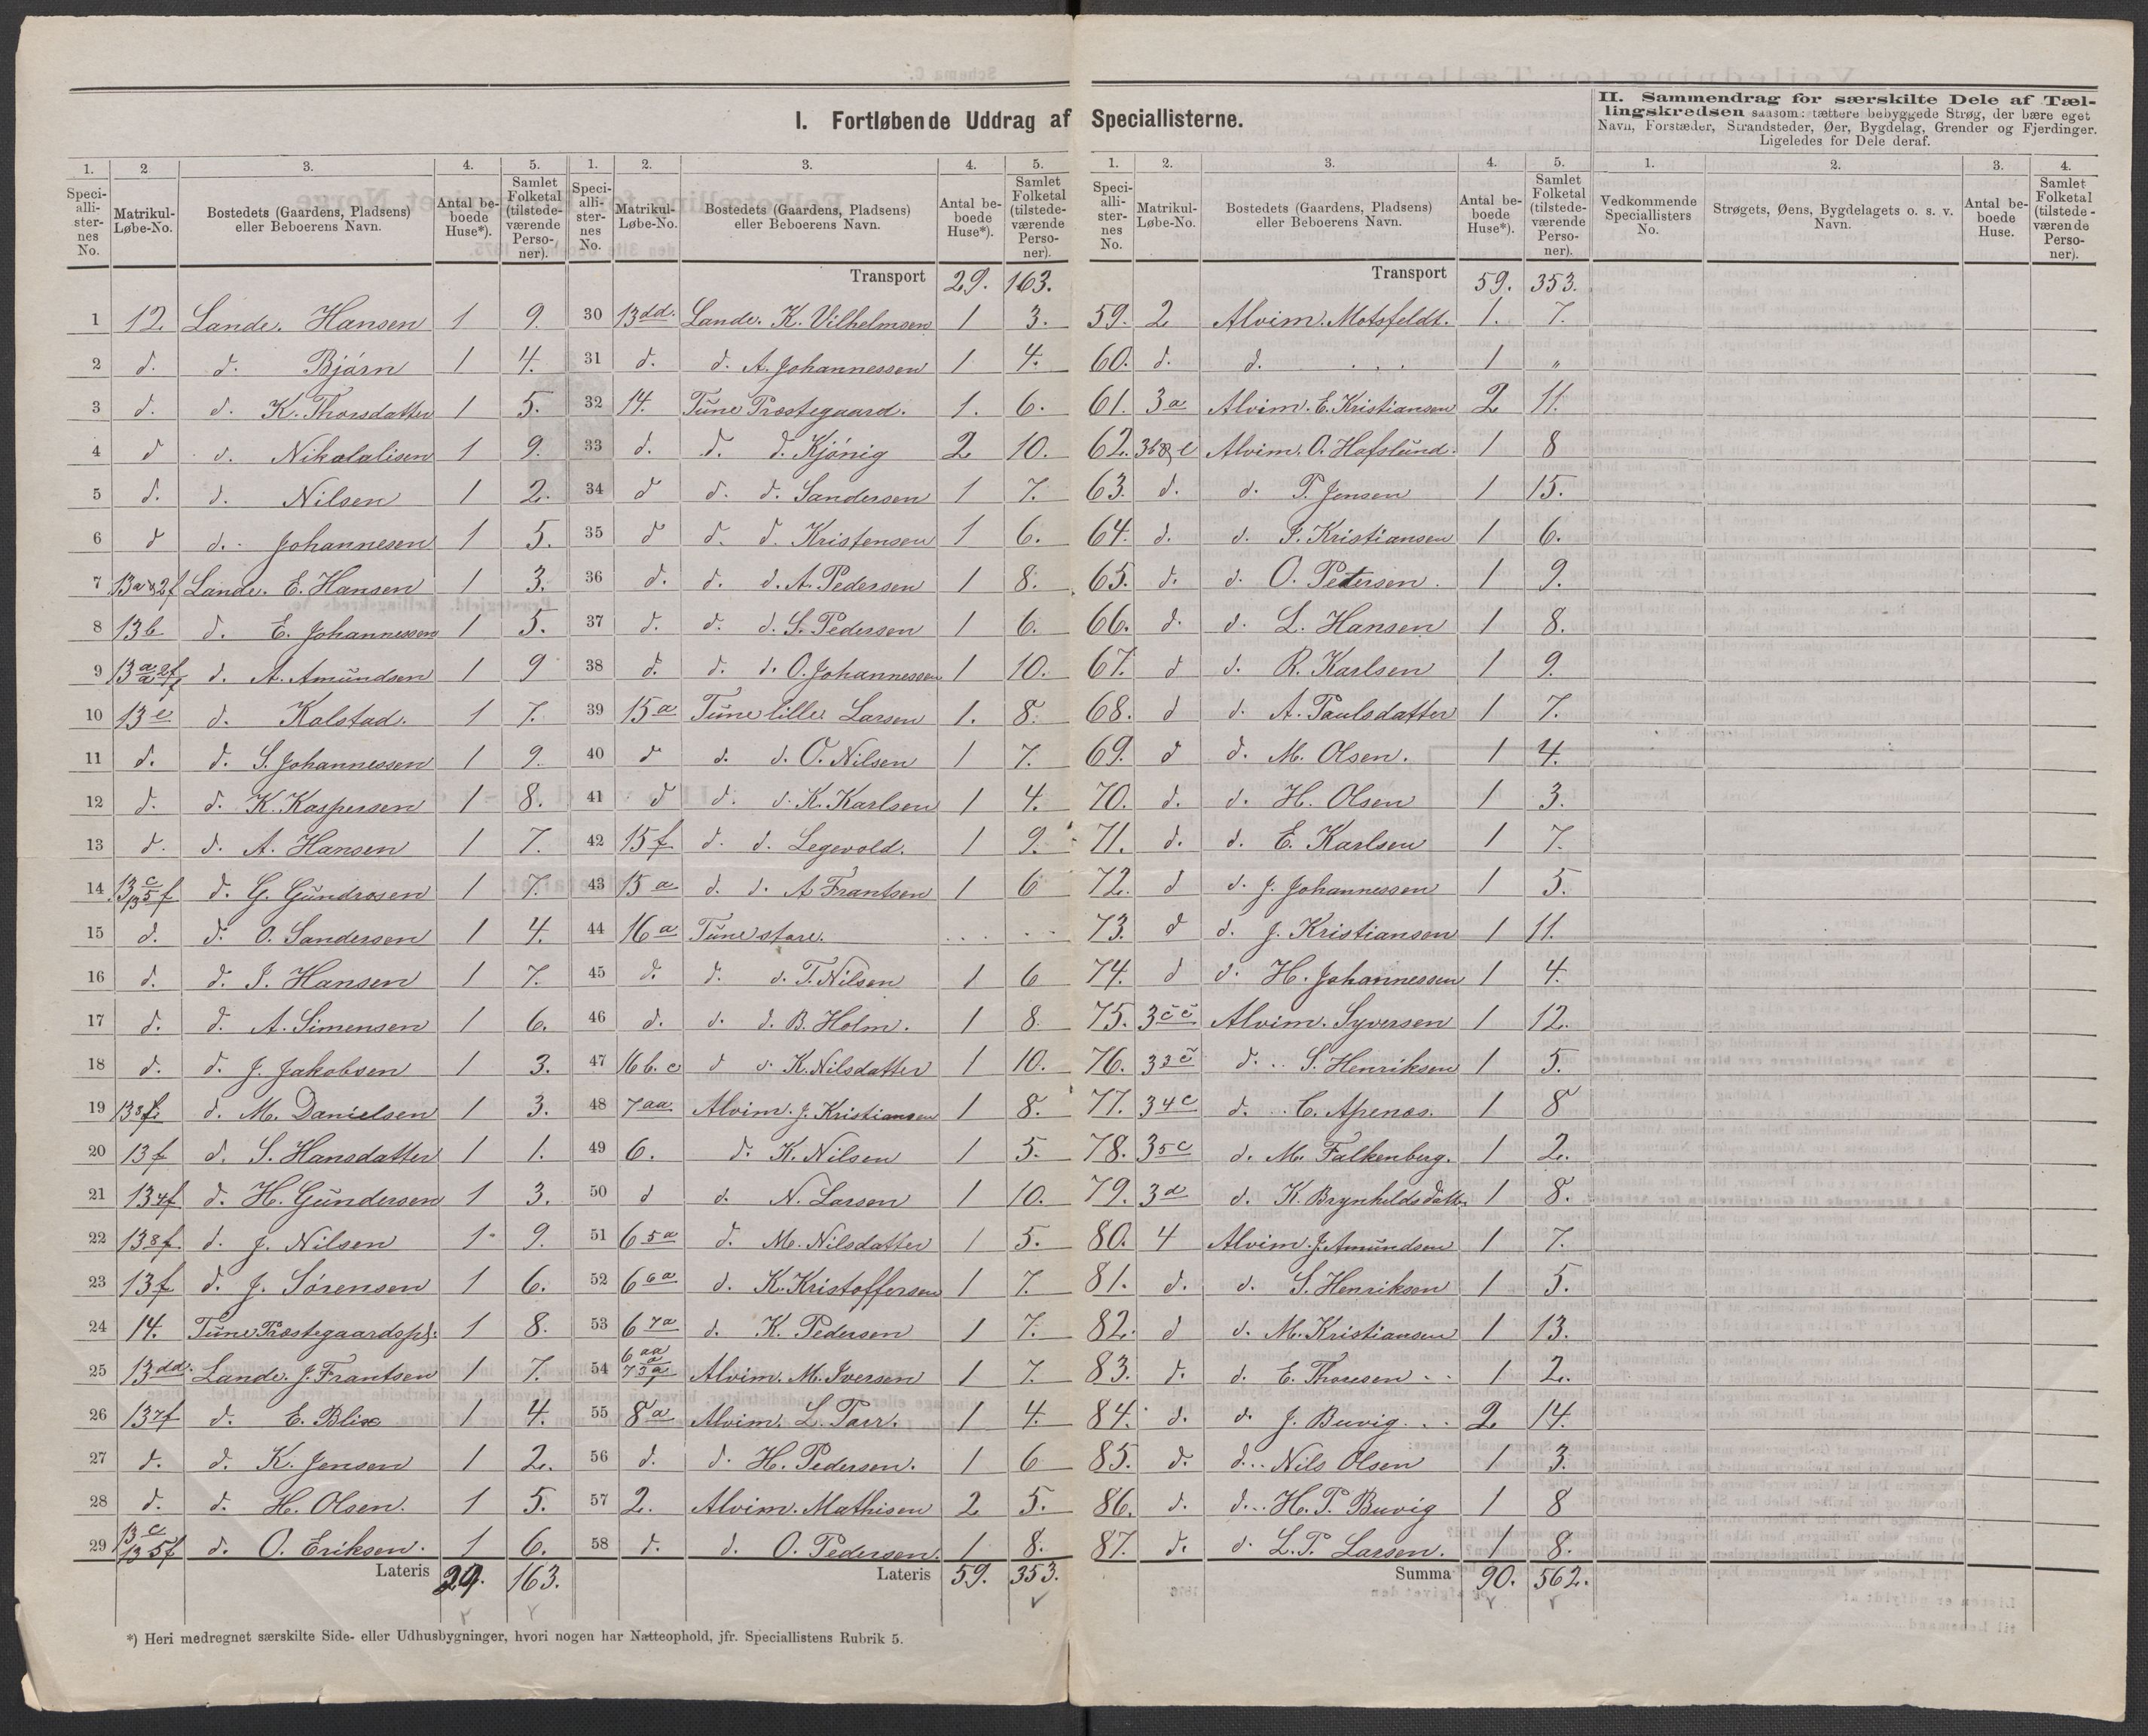 I. Fortløbende Uddrag af Speciallisterne.
II. Sammendrag for særskilte Dele af Tæl-
lingskredsen saasom: tættere bebyggede Strøg, der bære eget
Navn, Forstæder, Strandsteder, Øer, Bygdelag, Grender og Fjerdinger.
Ligeledes for Dele deraf.
1. 2 3. 4. 5. 1. 2. 3. 4. 5. 1. 2. 3. 4. 5. 1. 2. 3. 4.
Speci-alli-ster-nes No. Matrikul-Løbe-No. Bostedets (Gaardens, Pladsens) eller Beboerens Navn. Antal be-boede Huse*). Samlet Folketal (tilstede-værende Perso-ner).
Speci-alli-ster-nes No. Matrikul-Løbe-No. Bostedets (Gaardens, Pladsens) eller Beboerens Navn. Antal be-boede Huse*). Samlet Folketal (tilstede-værende Perso-ner).
Speci-alli-ster-nes No. Matrikul-Løbe-No. Bostedets (Gaardens, Pladsens) eller Beboerens Navn. Antal be-boede Huse*). Samlet Folketal (tilstede-værende Perso-ner).
Vedkommende Speciallisters No. Strøgets, Øens, Bygdelagets o. s. v. Navn. Antal be-boede Huse. Samlet Folketal (tilstede-værende Perso-ner).
1 12. Lande. Hansen 1 9.
2 d. d. Bjørn 1 4.
3 d. d. K. Thorsdatter 1 5.
4 d d. Nikolaisen 1 9.
5 d. d. Nilsen 1 2.
6 d d. Johannesen 1 5.
7 13a & 2f Lande. E. Hansen 1 3.
8 13b d. E. Johannessen 1 5.
9 d. A. Amundsen 1 9
10 13e d. Kolstad. 1 7.
11 d. d. S. Johannessen 1 9.
12 d. d. K. Kaspersen 1 8.
13 d. d. A. Hansen 1 7.
14 d. G. Gundrosen 1 7.
15 d. d. O. Sandersen 1 4.
16 d. d. J. Hansen 1 7.
17 d. d. A. Simensen 1 6.
18 d. d. J. Jakobsen 1 3.
19 d. M. Danielsen 1 3.
20 13f d. S. Hansdatter 1 1.
21 134f d. H. Gundersen 1 3.
22 138f d. J. Nilsen 1 9.
23 13f d. J. Sørensen 1 6.
24 14. Tune Præstegaardspl. 1 8.
25 13dd. Lande. J. Frantsen 1 7.
26 137f d. E. Blix 1 4.
27 d. d. K. Jensen 1 2.
28 d. d. H. Olsen. 1 5.
29 13c 135f d. O. Eriksen. 1 6.
Lateris 29. 163.
Transport 29. 163.
30 13dd. Lande. K. Vilhelmsen 1 3.
31 d. d. A. Johannessen 1 4.
32 14. Tune Præstegaard. 1. 6.
33 d. d. d. Kjønig 2 10.
34 d d. d. Sandersen 1 7.
35 d d. d. Kristensen 1 6.
36 d. d. d. A. Pedersen 1 8.
37 d. d. d. S. Pedersen 1 6.
38 d. d. d. O. Johannessen 1 10.
39 15a Tune lille Larsen 1. 8.
40 d d. d. O. Nilsen 1 7.
41 d d. d. K. Karlsen 1 4.
42 15f d. d. Legevold. 1 9.
43 15a d. d. A Frantsen 1 6
44 16a Tune store. ... ...
45 d. d. d. T. Nilsen 1 6
46 d. d. d. B. Holm. 1 8.
47 16b.c d d. K. Nilsdatter 1 10.
48 7aa Alvim. J. Kristiansen 1 8.
49 6. d. K. Nilsen 1 5.
50 d d. N. Larsen 1 10.
51 65a d. M. Nilsdatter 1 5.
52 66a d. K. Kristoffersen 1 7.
53 67a d. K. Pedersen 1 7.
54 Alvim. M. Iversen 1 7.
55 8a Alvim. L. Parr. 1 4.
56 d. d. H. Pedersen. 1 6
57 2. Alvim. Mathisen 2 5.
58 d. d. O. Pedersen. 1 8.
Lateris 59. 353.
Transport 59. 353.
59. 2 Alvim. Motsfeldt. 1. 7.
60. d. d. . . . 1 "
61. 3a Alvim. E. Kristiansen 2 11.
62. Alvim. O. Hafslund. 1 8
63. d. d. P. Jensen 1 15.
64. d. d. P. Kristiansen 1 6.
65. d. d. O. Petersen. 1 9.
66. d. d. L. Hansen 1 8.
67. d d. R. Karlsen 1 9.
68. d d. A. Paulsdatter 1 7.
69. d d. M. Olsen. 1 4.
70. d. d. H. Olsen 1 3.
71. d. d. E. Karlsen 1 7.
72. d d. J. Johannessen 1 5.
73. d d. J. Kristiansen 1 11.
74. d d. H. Johannessen 1 4.
75. Alvim. Syversen 1 12.
76. d. S. Henriksen 1 5.
77. 34c d. C. Apenæs. 1 8
78. 35c d. M. Falkenberg. 1 2.
79. 3d d. K. Brynhildsdatter 1 8.
80. 4 Alvim. J. Amundsen 1 7.
81. d. d. S. Henriksen 1 5.
82. d d. M. Kristiansen 1 13.
83. d. d. E. Thoresen 1 2.
84. d. d. J. Buvig 2. 14.
85. d. d. Nils Olsen 1 3.
86. d. d. H. P. Buvig 1 8
87. d. d. L. P. Larsen. 1 8.
Summa 90. 562.
*) Heri medregnet særskilte Side- eller Udhusbygninger, hvori nogen har Natteophold, jfr. Speciallistens Rubrik 5.